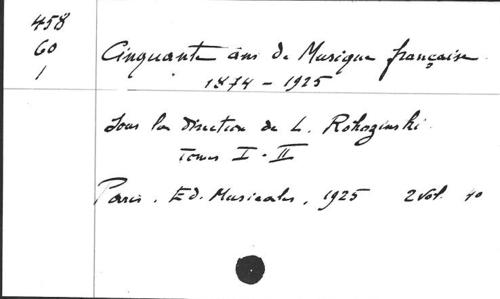 458
60
1
Cinquante ans de Musique française
1874 - 1925
Sous la direction de L. Rohozinski
Tomes I - II
Paris. Ed. Musicales, 1925 2 vol. 4o